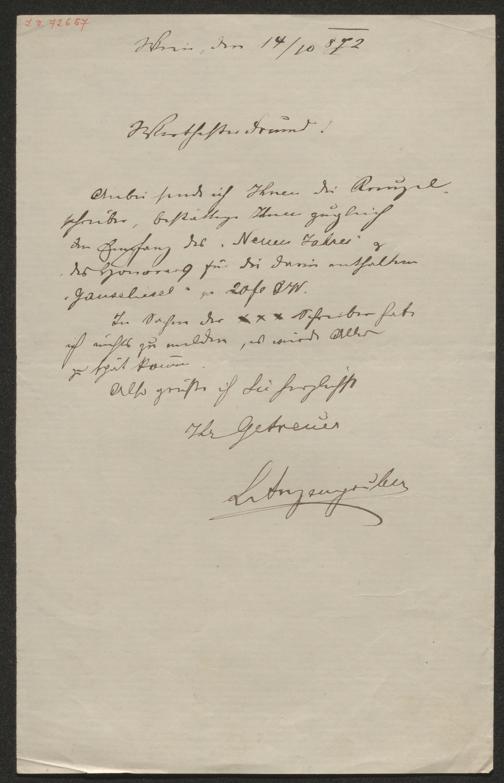 I. N. 72667
Wien, den 14/10 872
Werthester Freund!
Anbei sende ich Ihnen die Kreuzel-
schreiber, bestättige Ihnen zugleich
den Empfang des „Neuen Jahres" &
des Honorars für die darin enthaltene
„Gänseliesel" pr 20 fl ÖW.
In Sachen der xxx Schreiber habe
ich nichts zu melden, es wird Alles
zu spät kommen.
Also grüße ich Sie herzlichst
Ihr Getreuer
L. Anzengruber